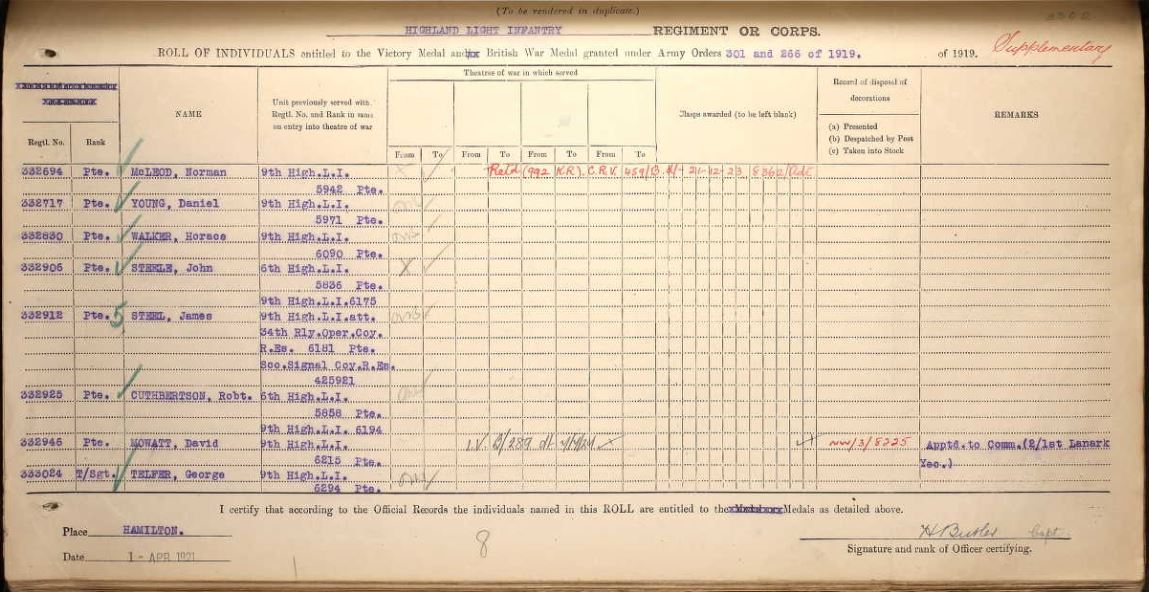 (To be rendered in duplicate.)
HIGHLAND LIGHT INFANTRY REGIMENT OR CORPS.
ROLL OF INDIVIDUALS entitled to the Victory Medal and British War Medal granted under Army Orders 301 and 266 of 1919. of 1919. Supplementary
Theatres of war in which served
NAME
Unit previously served with
Regtl. No. and Rank in same
on entry into theatre of war
Clasps awarded (to be left blank)
Record of disposal of
decorations
(a) Presented
(b) Despatched by Post
(c) Taken into Stock
REMARKS
Regtl. No. Rank From To From To From To From To
332694 Pte. McLEOD, Norman 9th High.L.I. Retd (992 KR). C.R.V. 459/B d/- 21-12-23
5942 Pte.
332717 Pte. YOUNG, Daniel 9th High.L.I.
5971 Pte.
332830 Pte. WALKER, Horace 9th High.L.I.
6090 Pte.
332906 Pte. STEELE, John 6th High.L.I. X
5836 Pte.
9th High.L.I.6175
332912 Pte. 5 STEEL, James 9th High.L.I.att.
34th Rly.Oper.Coy.
R.Es. 6181 Pte.
Sco.Signal Coy.R.Es.
425921
332925 Pte. CUTHBERTSON, Robt. 6th High.L.I.
5858 Pte.
9th High.L.I. 6194
332946 Pte. MOWATT, David 9th High.L.I. I.V. NW/3/8225 Apptd.to Comm.(2/1st Lanark
6215 Pte. Yeo.)
333024 T/Sgt. TELFER, George 9th High.L.I.
6294 Pte.
I certify that according to the Official Records the individuals named in this ROLL are entitled to the Medals as detailed above.
Place HAMILTON.
H Butler Capt.
8
Date 1 - APR 1921
Signature and rank of Officer certifying.